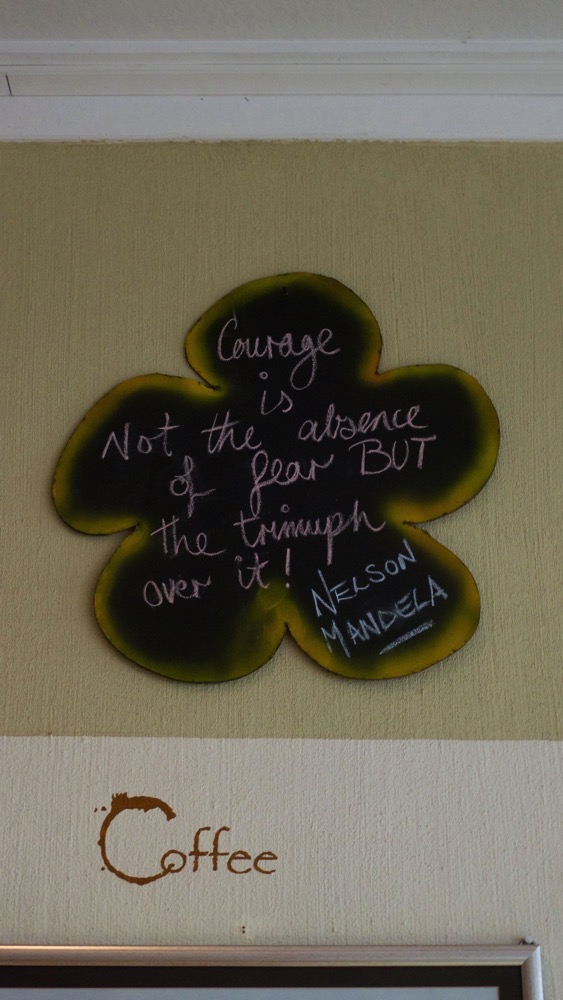 Courage
is
Not the absence
of fear BUT
the triumph
over it!
NELSON
MANDELA
Coffee